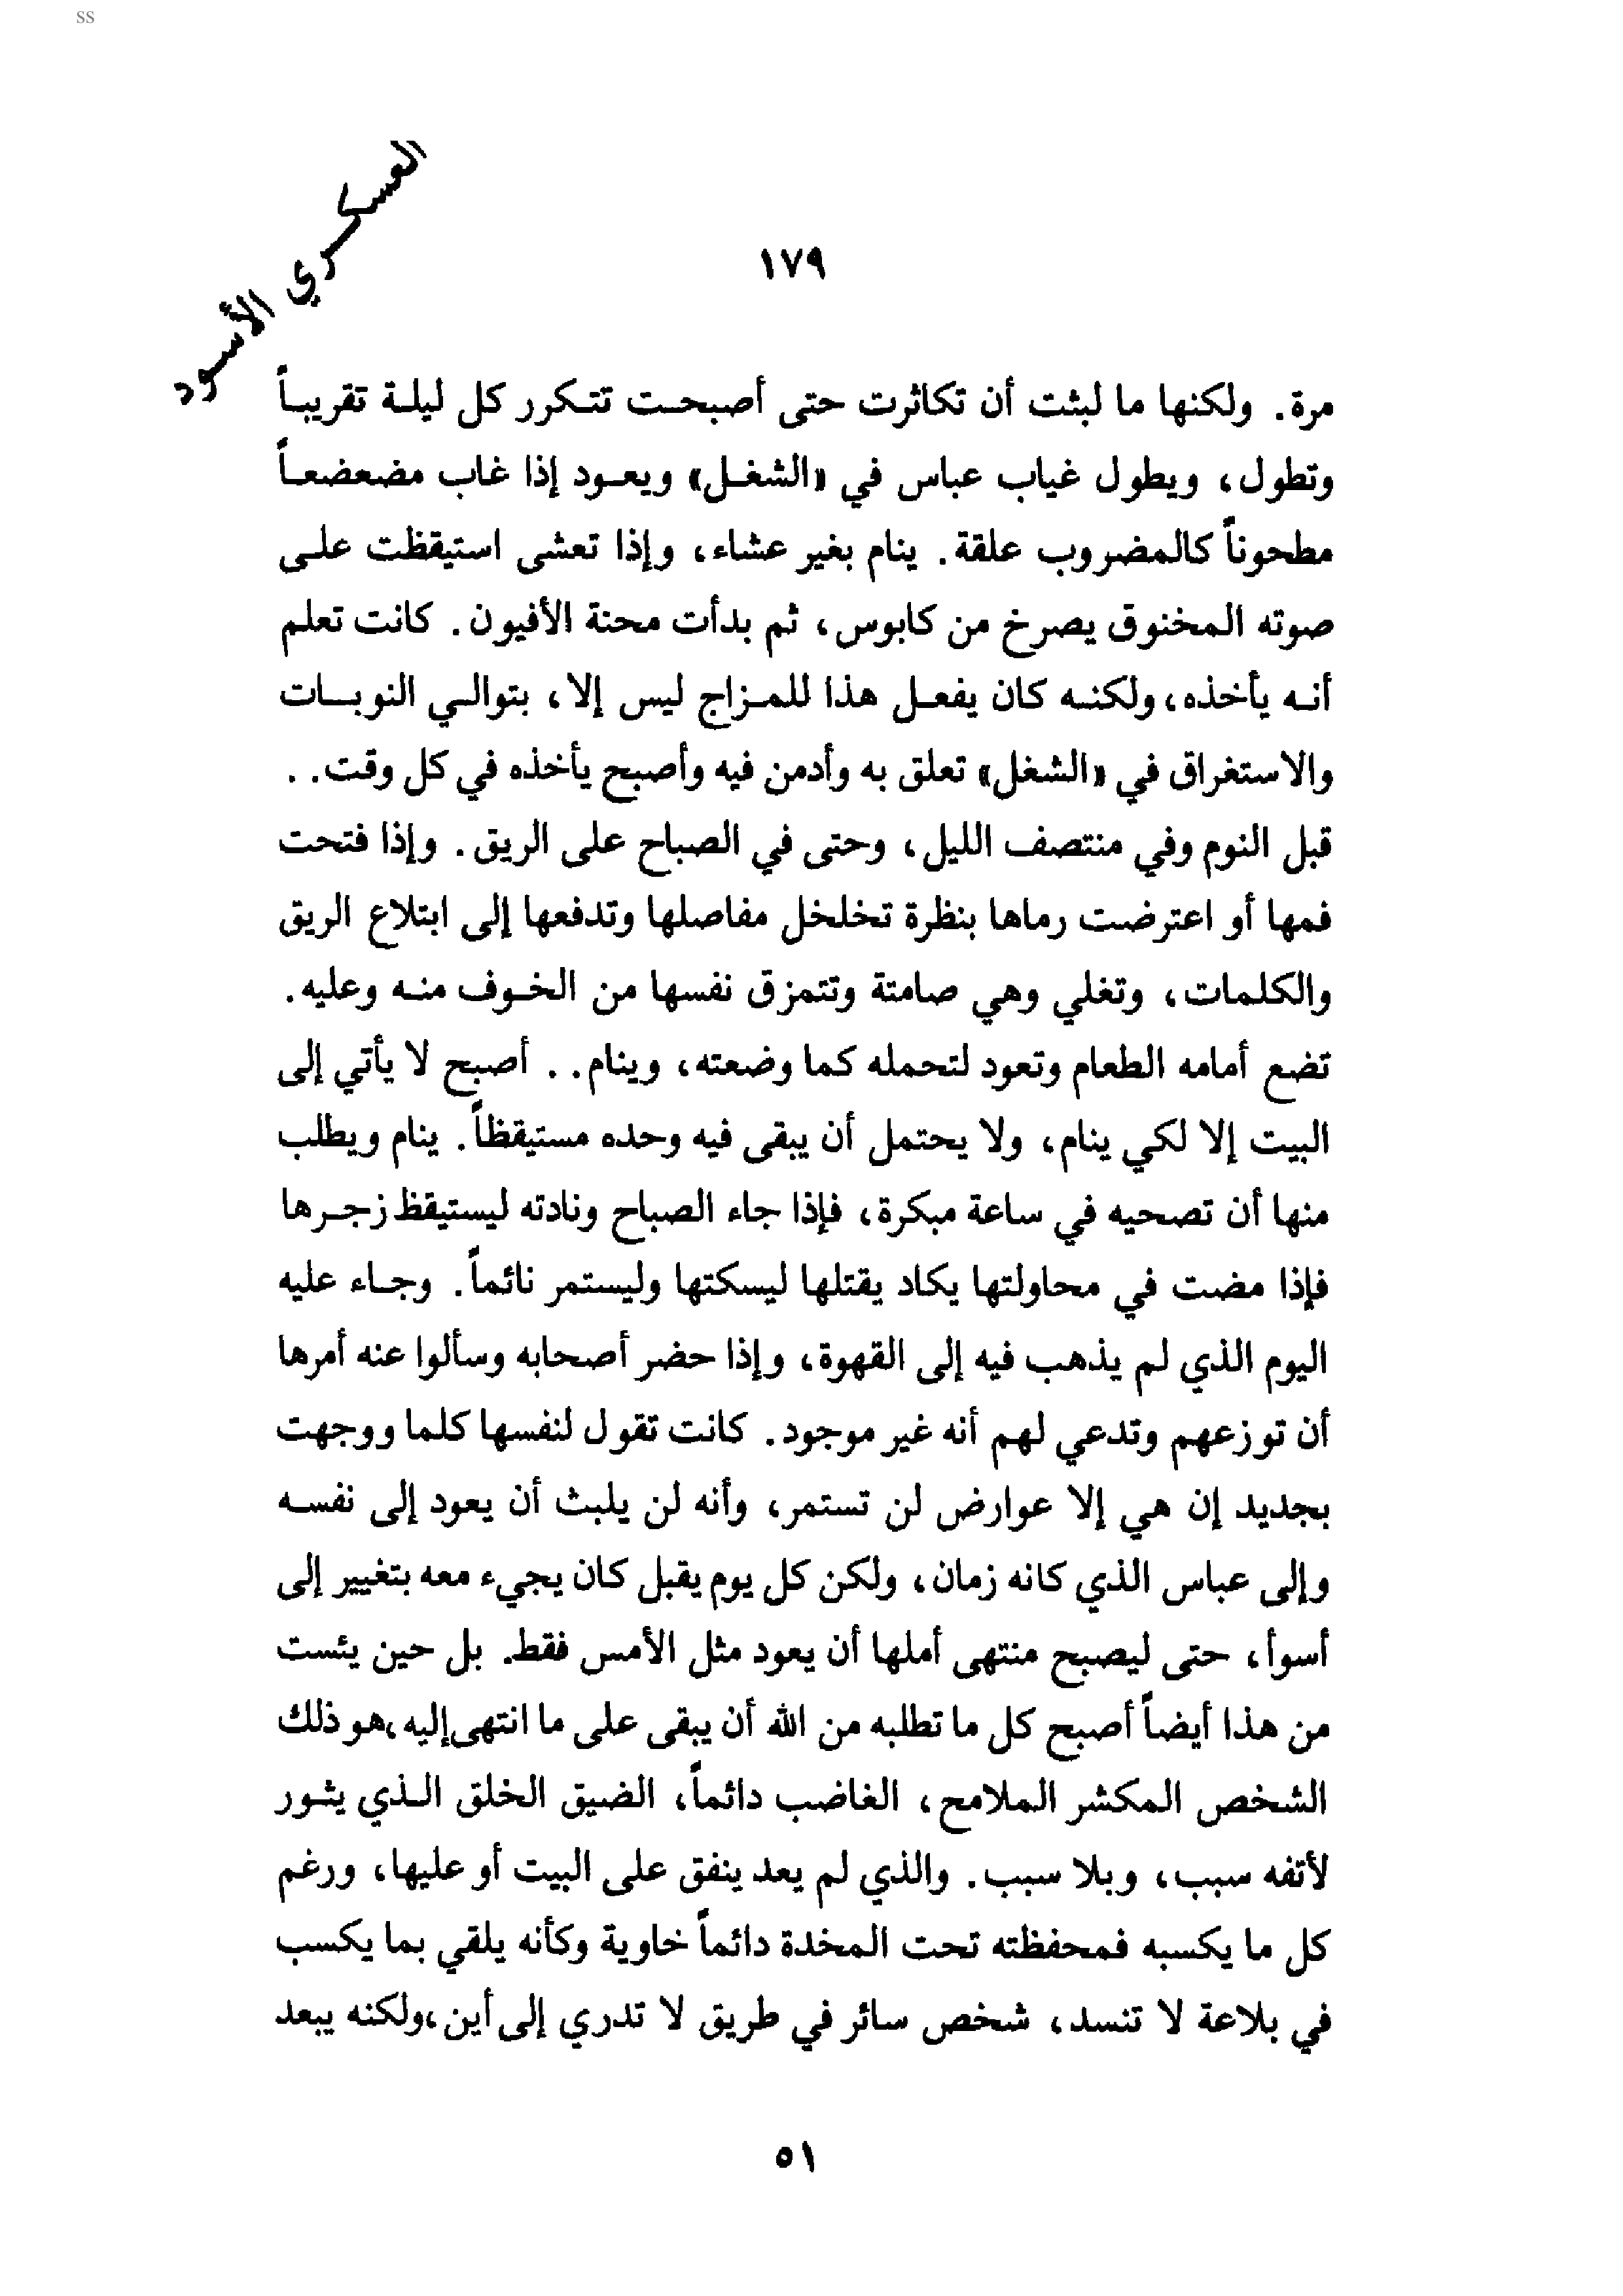 ss
العسكري الأسود
١٧٩
مرة. ولكنها ما لبثت أن تكاثرت حتى أصبحت تتكرر كل ليلة تقريباً
وتطول، ويطول غياب عباس في «الشغل» ويعود إذا غاب مضعضعاً
مطحوناً كالمضروب علقة. ينام بغير عشاء، وإذا تعشى استيقظت على
صوته المخنوق يصرخ من كابوس، ثم بدأت محنة الأفيون. كانت تعلم
أنه يأخذه، ولكنه كان يفعل هذا للمزاج ليس إلا، بتوالي النوبات
والاستغراق في «الشغل» تعلق به وأدمن فيه وأصبح يأخذه في كل وقت..
قبل النوم وفي منتصف الليل، وحتى في الصباح على الريق. وإذا فتحت
فمها أو اعترضت رماها بنظرة تخلخل مفاصلها وتدفعها إلى ابتلاع الريق
والكلمات، وتغلي وهي صامتة وتتمزق نفسها من الخوف منه وعليه.
تضع أمامه الطعام وتعود لتحمله كما وضعته، وينام.. أصبح لا يأتي إلى
البيت إلا لكي ينام، ولا يحتمل أن يبقى فيه وحده مستيقظاً. ينام ويطلب
منها أن تصحيه في ساعة مبكرة، فإذا جاء الصباح ونادته ليستيقظ زجرها
فإذا مضت في محاولتها يكاد يقتلها ليسكتها وليستمر نائماً. وجاء عليه
اليوم الذي لم يذهب فيه إلى القهوة، وإذا حضر أصحابه وسألوا عنه أمرها
أن توزعهم وتدعي لهم أنه غير موجود. كانت تقول لنفسها كلما ووجهت
بجديد إن هي إلا عوارض لن تستمر، وأنه لن يلبث أن يعود إلى نفسه
وإلى عباس الذي كانه زمان، ولكن كل يوم يقبل كان يجيء معه بتغيير إلى
أسوأ، حتى ليصبح منتهى أملها أن يعود مثل الأمس فقط. بل حين يئست
من هذا أيضاً أصبح كل ما تطلبه من الله أن يبقى على ما انتهى إليه، هو ذلك
الشخص المكشر الملامح، الغاضب دائماً، الضيق الخلق الذي يثور
لأتفه سبب، وبلا سبب. والذي لم يعد ينفق على البيت أو عليها، ورغم
كل ما يكسبه فمحفظته تحت المخدة دائماً خاوية وكأنه يلقي بما يكسب
في بلاعة لا تنسد، شخص سائر في طريق لا تدري إلى أين، ولكنه يبعد
٥١